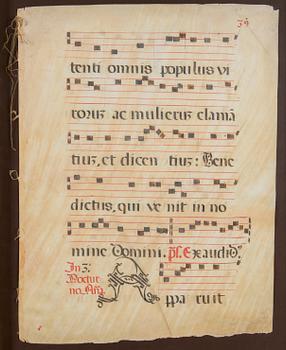 tenti omnis populus vi
torum ac mulierum clamā
tium, et dicen tium: Bene
dictus, qui ve nit in no
mine Domini. ps. Exaudiō.
In 3.
Noctur
no. Añ.
Appa ruit